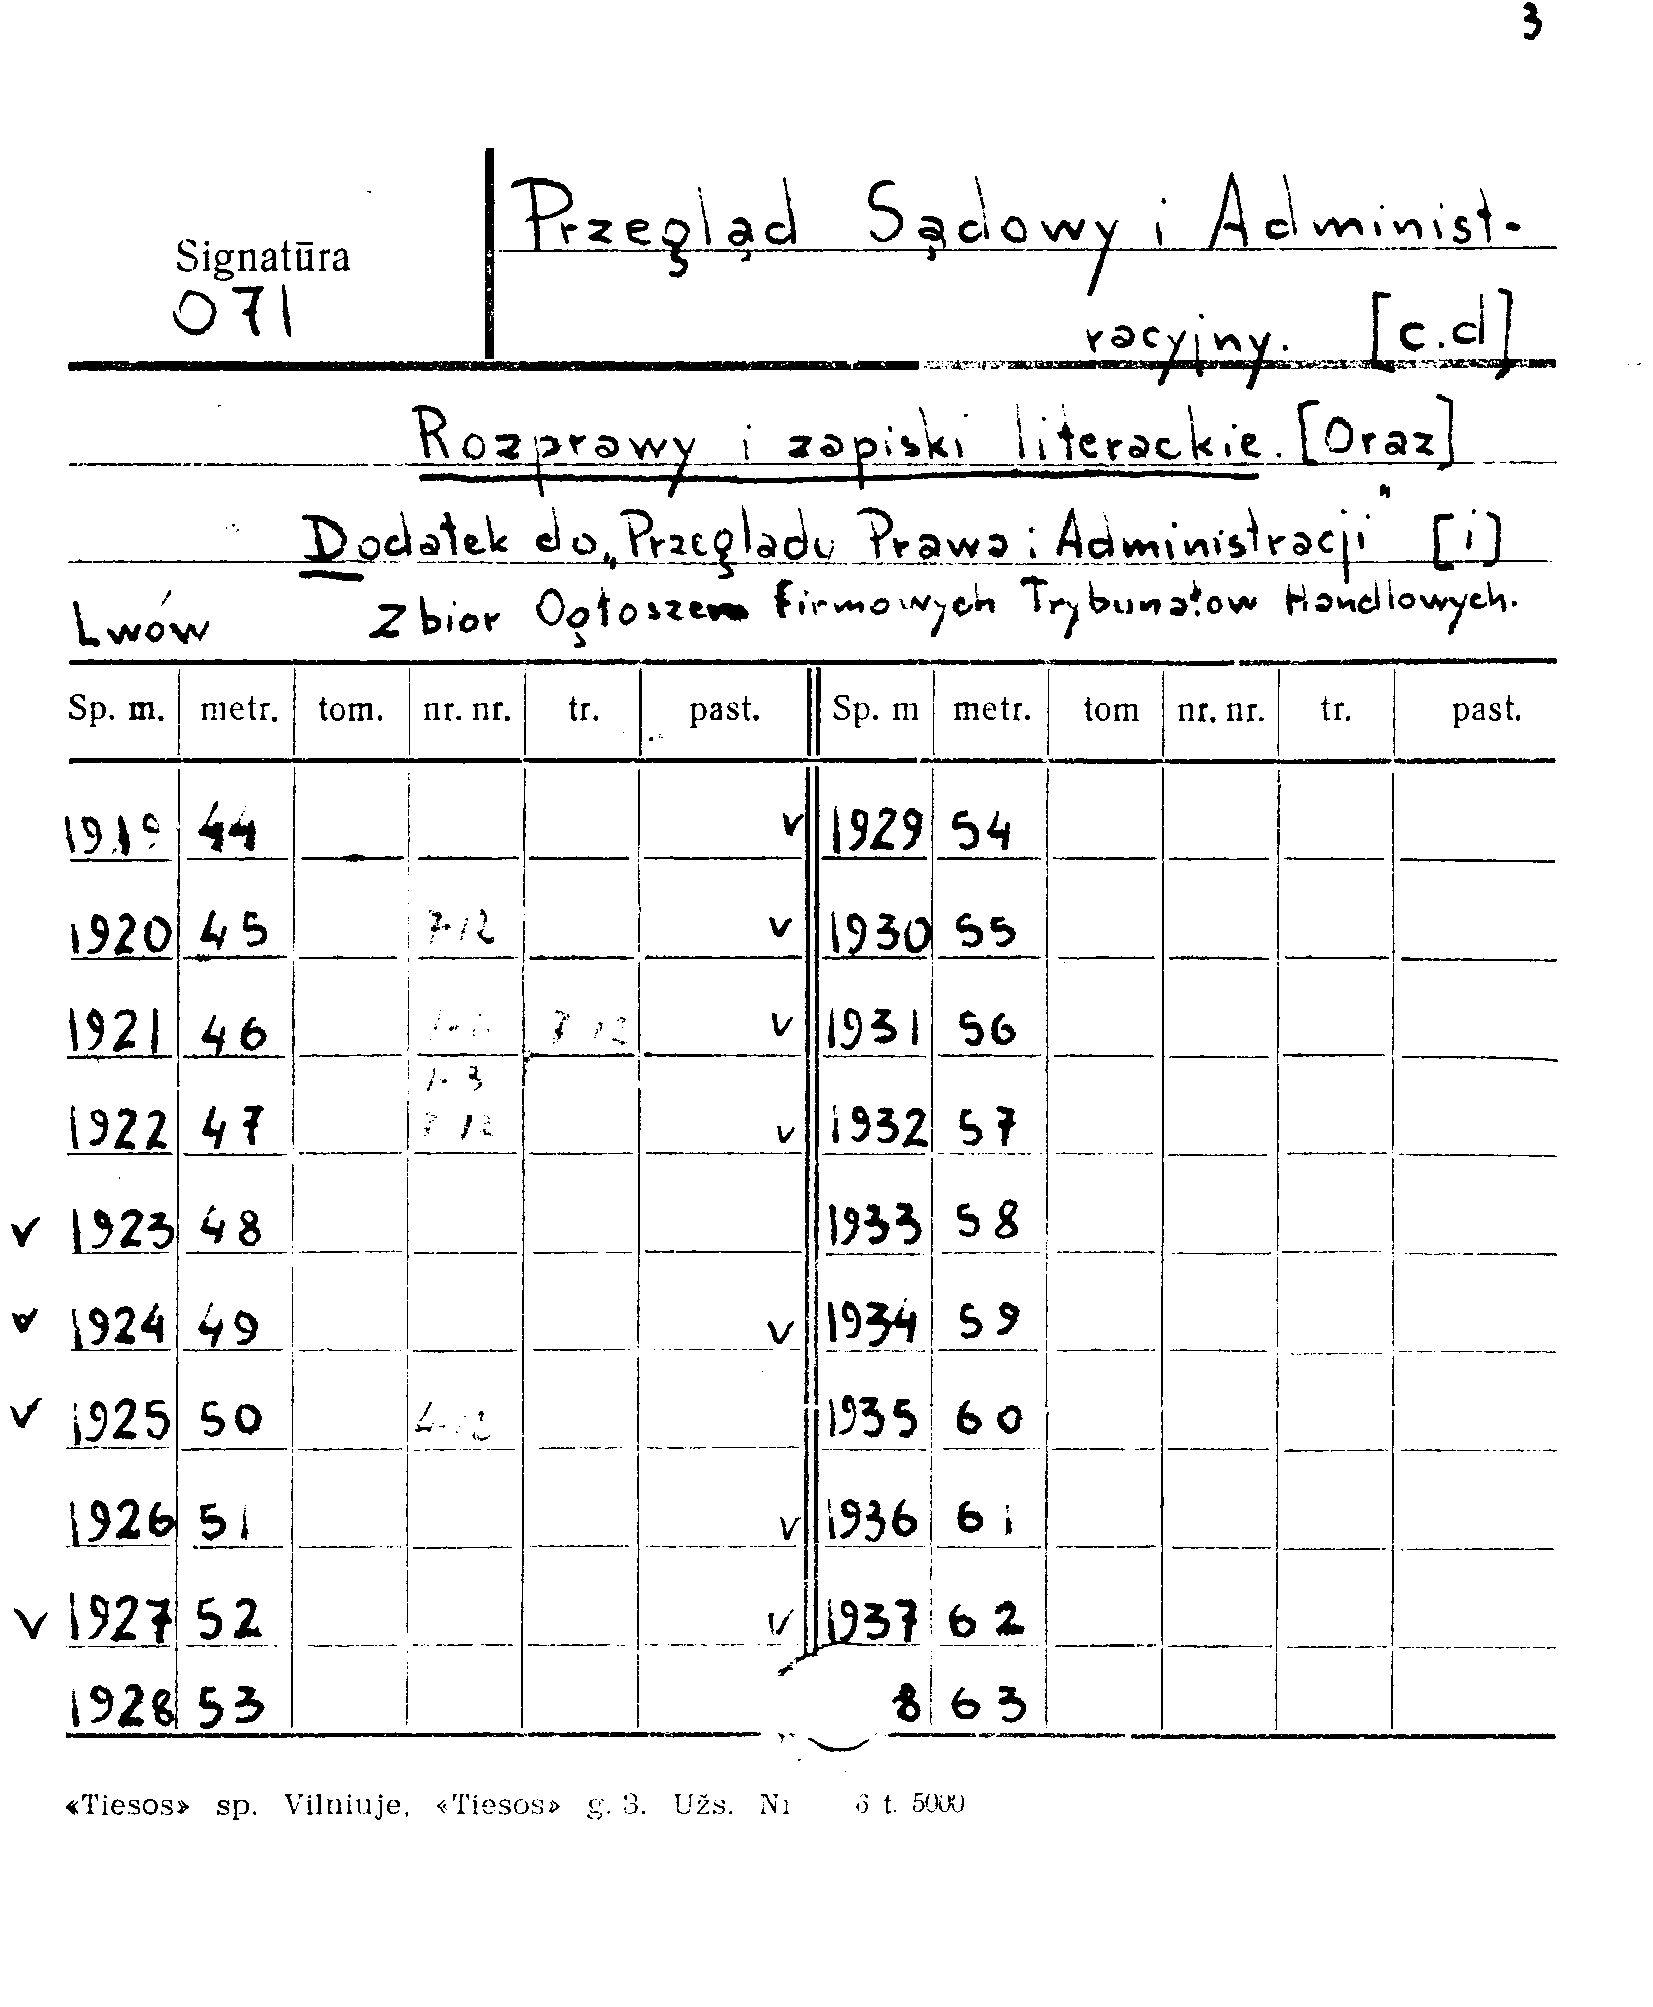 3
Signatūra
071
Przegląd Sądowy i Administ-
racyjny. [c.d]
Rozprawy i zapiski literackie. [Oraz]
Dodatek do „Przeglądu Prawa i Administracji" [i]
Lwów Zbior Ogłoszen Firmowych Trybunałow Handlowych.
Sp. m. metr. tom. nr. nr. tr. past. Sp. m metr. tom nr. nr. tr. past.
44 v 1929 54
1920 45 7-12 v 1930 55
1921 46 7 12 v 1931 56
1-3
1922 47 7 12 v 1932 57
v 1923 48 1933 58
v 1924 49 v 1934 59
v 1925 50 4-12 1935 60
1926 51 v 1936 61
v 1927 52 v 1937 62
1928 53 8 63
«Tiesos» sp. Vilniuje, «Tiesos» g. 3. Užs. 6 t. 5000